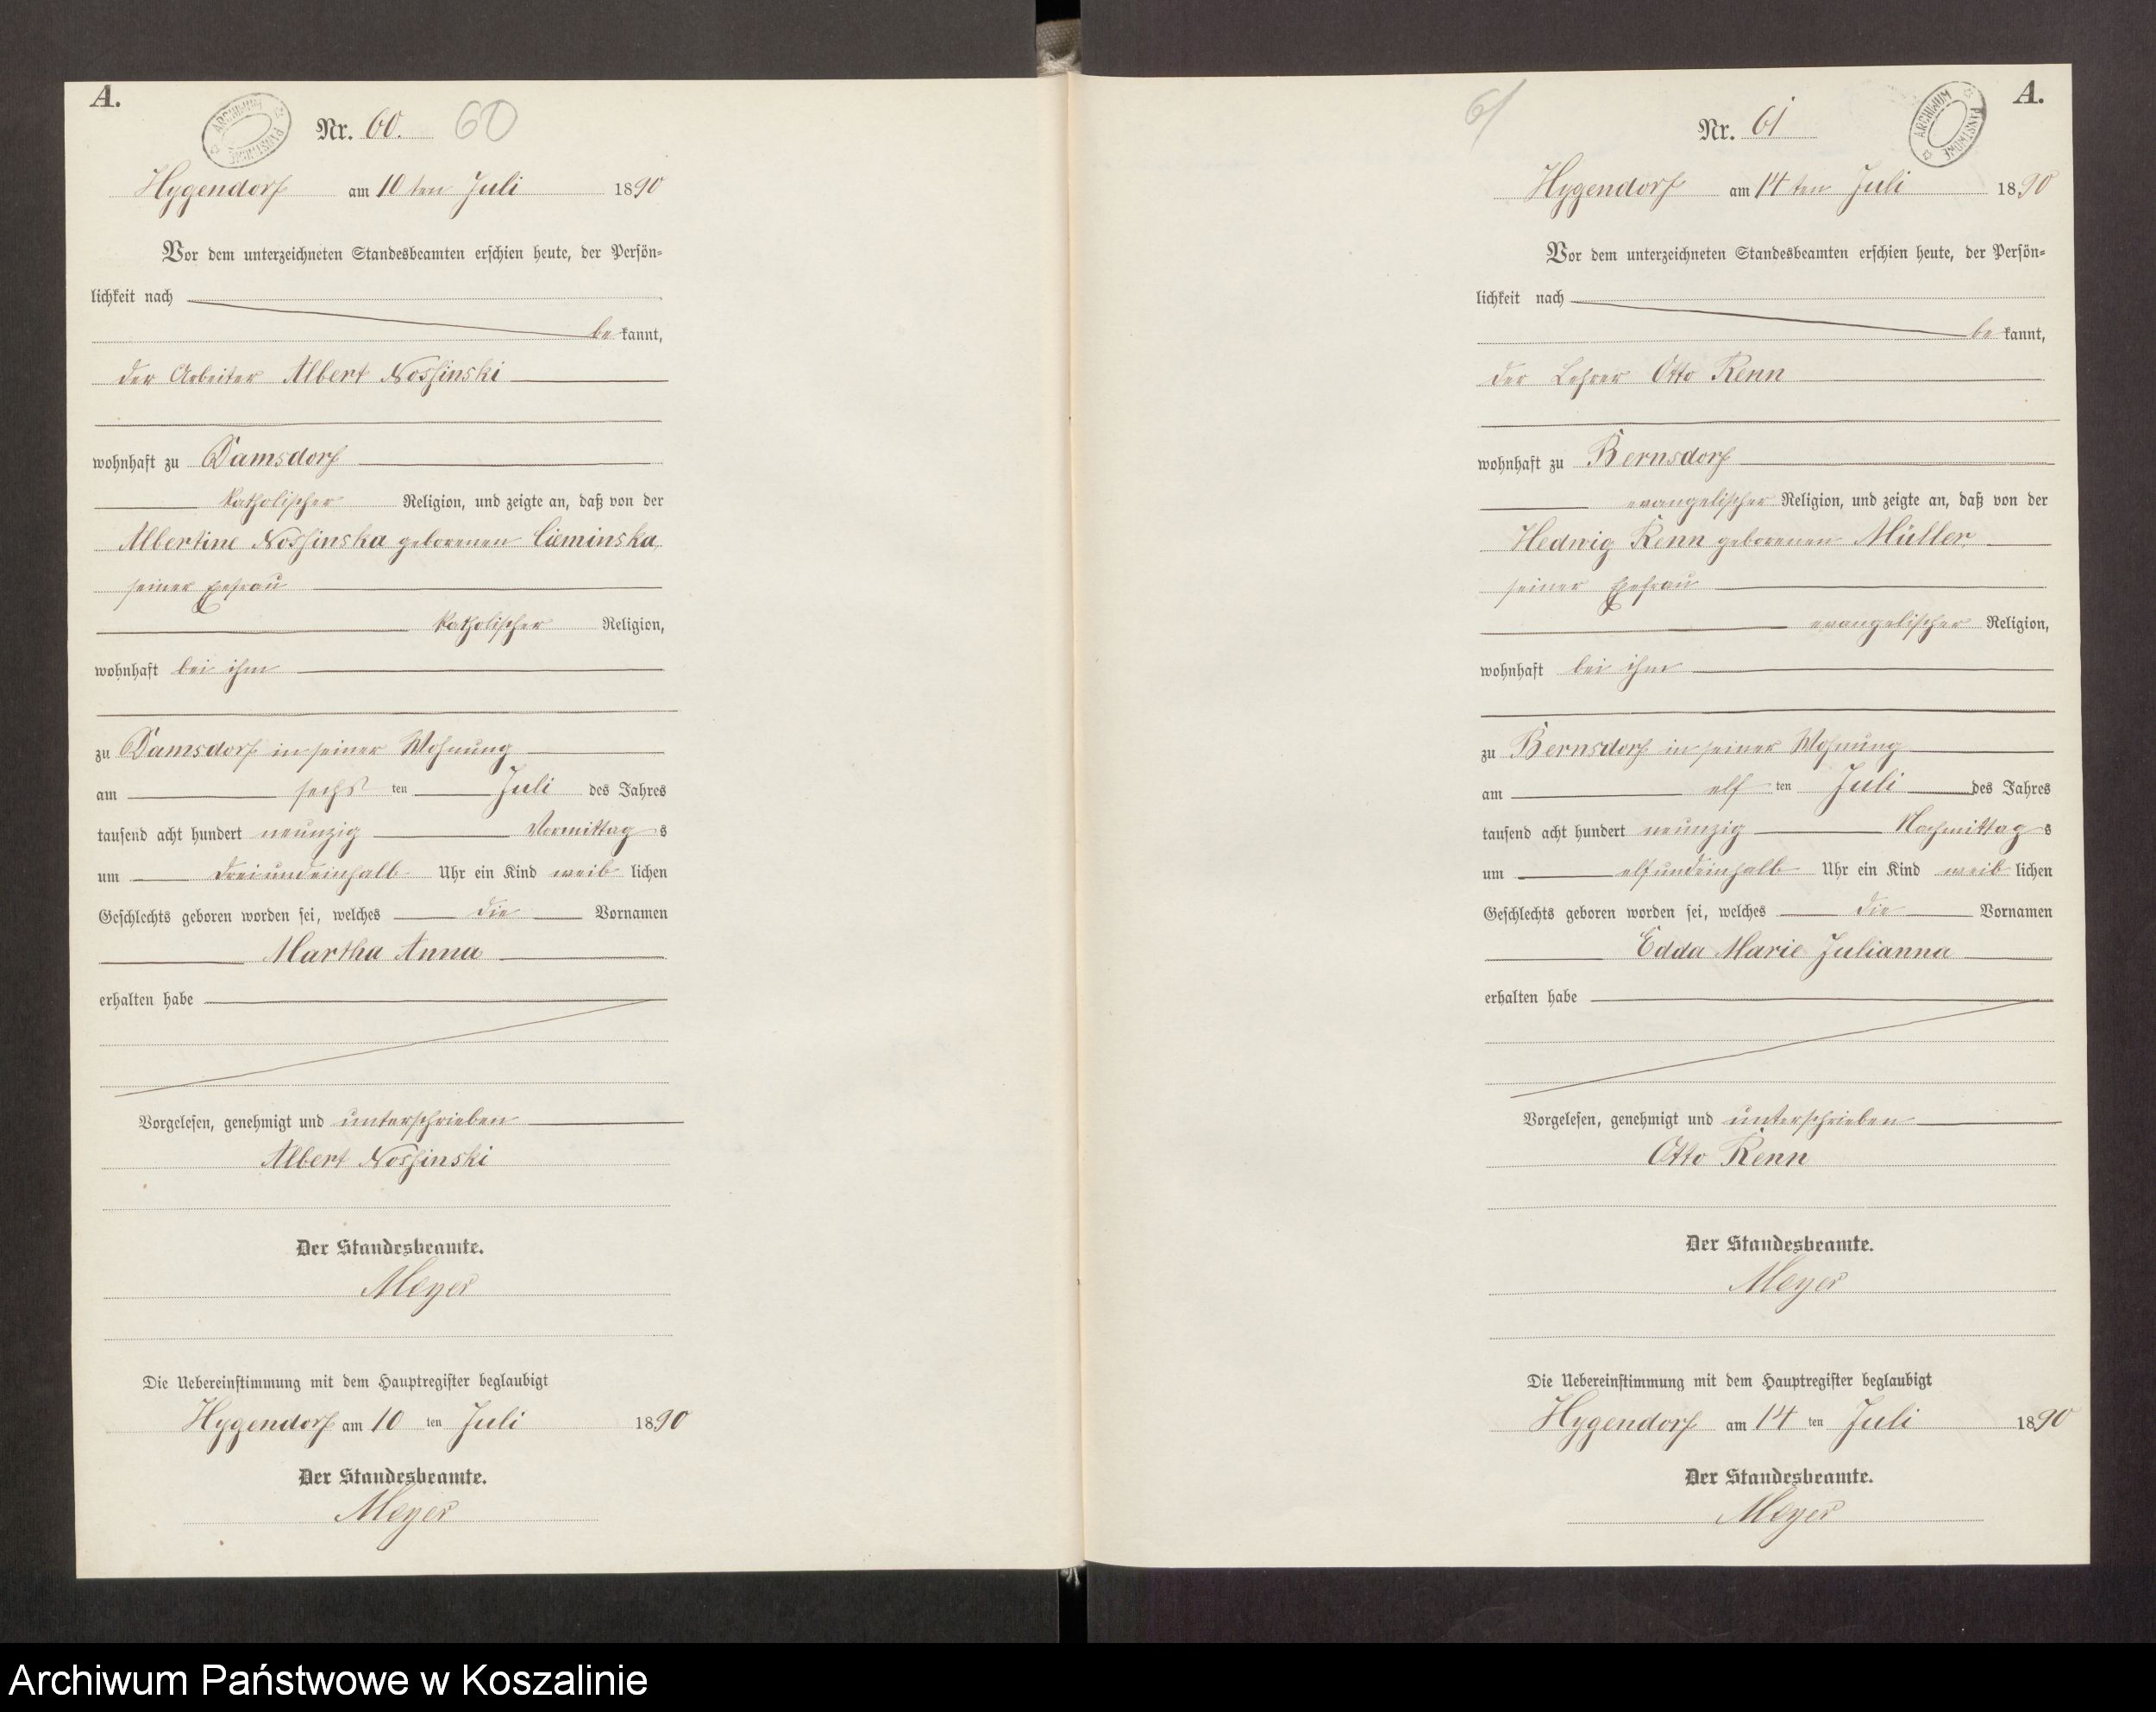 A.
ARCHIWUM PAŃSTWOWE
Nr. 60. 60
Hygendorf am 10 ten Juli 1890
Vor dem unterzeichneten Standesbeamten erschien heute, der Persön-
lichkeit nach
be kannt,
der Arbeiter Albert Nossinski
wohnhaft zu Damsdorf
katholischer Religion, und zeigte an, daß von der
Albertine Nossinska geborenen Cieminska
seiner Ehefrau
katholischer Religion,
wohnhaft bei ihm
zu Damsdorf in seiner Wohnung
am sechs ten Juli des Jahres
tausend acht hundert neunzig Vormittag s
um dreiundeinhalb Uhr ein Kind weib lichen
Geschlechts geboren worden sei, welches die Vornamen
Martha Anna
erhalten habe
Vorgelesen, genehmigt und unterschrieben
Albert Nossinski
Der Standesbeamte.
Meyer
Die Uebereinstimmung mit dem Hauptregister beglaubigt
Hygendorf am 10 ten Juli 1890
Der Standesbeamte.
Meyer
61
A.
ARCHIWUM PAŃSTWOWE
Nr. 61
Hygendorf am 14 ten Juli 1890
Vor dem unterzeichneten Standesbeamten erschien heute, der Persön-
lichkeit nach
be kannt,
der Lehrer Otto Renn
wohnhaft zu Bernsdorf
evangelischer Religion, und zeigte an, daß von der
Hedwig Renn geborenen Müller,
seiner Ehefrau
evangelischer Religion,
wohnhaft bei ihm
zu Bernsdorf in seiner Wohnung
am elf ten Juli des Jahres
tausend acht hundert neunzig Nachmittag s
um elfundeinhalb Uhr ein Kind weib lichen
Geschlechts geboren worden sei, welches die Vornamen
Edda Marie Julianna
erhalten habe
Vorgelesen, genehmigt und unterschrieben
Otto Renn
Der Standesbeamte.
Meyer
Die Uebereinstimmung mit dem Hauptregister beglaubigt
Hygendorf am 14 ten Juli 1890
Der Standesbeamte.
Meyer
Archiwum Państwowe w Koszalinie